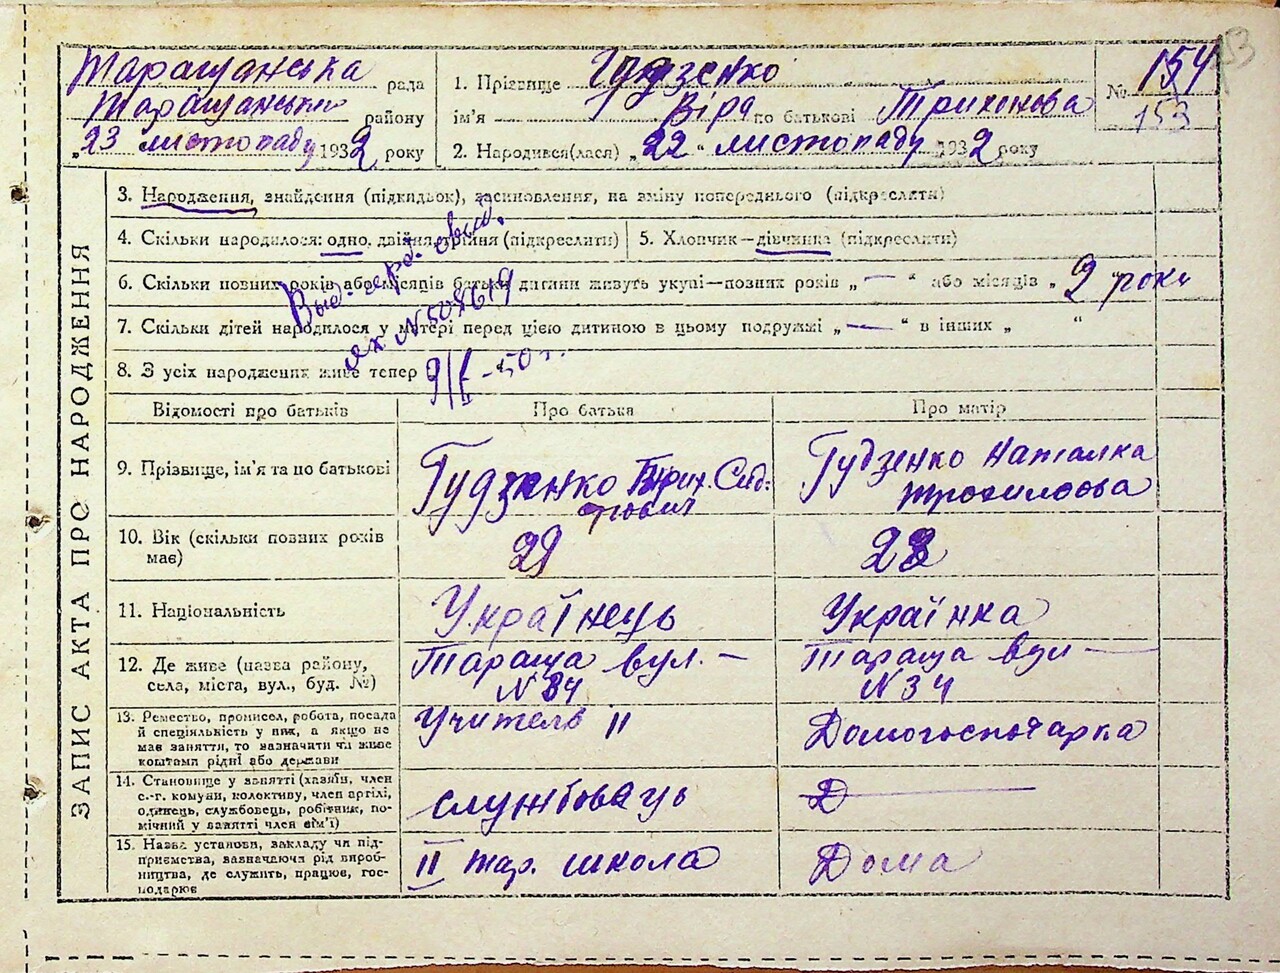 Таращанська рада
Таращанський району
„23 листопаду 1932 року
1. Прізвище Гудзенко
ім'я Віра по батькові Трихонова
2. Народився(лася) „22“ листопаду 1932 року
№ 154
153
153
ЗАПИС АКТА ПРО НАРОДЖЕННЯ
3. Народження, знайдення (підкидьок), засиновлення, на зміну попереднього (підкреслити)
4. Скільки народилося: одно, двійня, трійня (підкреслити)
5. Хлопчик—дівчинка (підкреслити)
6. Скільки повних років або місяців батьки дитини живуть укупі—повних років „—“ або місяців „2 роки
7. Скільки дітей народилося у матері перед цією дитиною в цьому подружжі „—“ в інших „ “
8. З усіх народжених живе тепер
Выд. свид.
N 508619
9/І-50 г.
Відомості про батьків
Про батька
Про матір
9. Прізвище, ім'я та по батькові
Гудзенко Трих. Сид-
Гудзенко Наталка
10. Вік (скільки повних років має)
29
28
11. Національність
Українець
Українка
12. Де живе (назва району,
села, міста, вул., буд. №)
Тараща вул. —
N 34
Тараща вул —
N 34
13. Ремество, промисел, робота, посада
й спеціяльність у них, а якщо не
має заняття, то зазначити чи живе
коштами рідні або держави
Учитель II
Домогосподарка
14. Становище у занятті (хазяїн, член
с.-г. комуни, колективу, член артілі,
одинець, службовець, робітник, по-
мічний у занятті член сім'ї)
службоваць
Д
15. Назва установи, закладу чи під-
приємства, зазначаючи рід вироб-
ництва, де служить, працює, гос-
подарює
II тар. школа
Дома